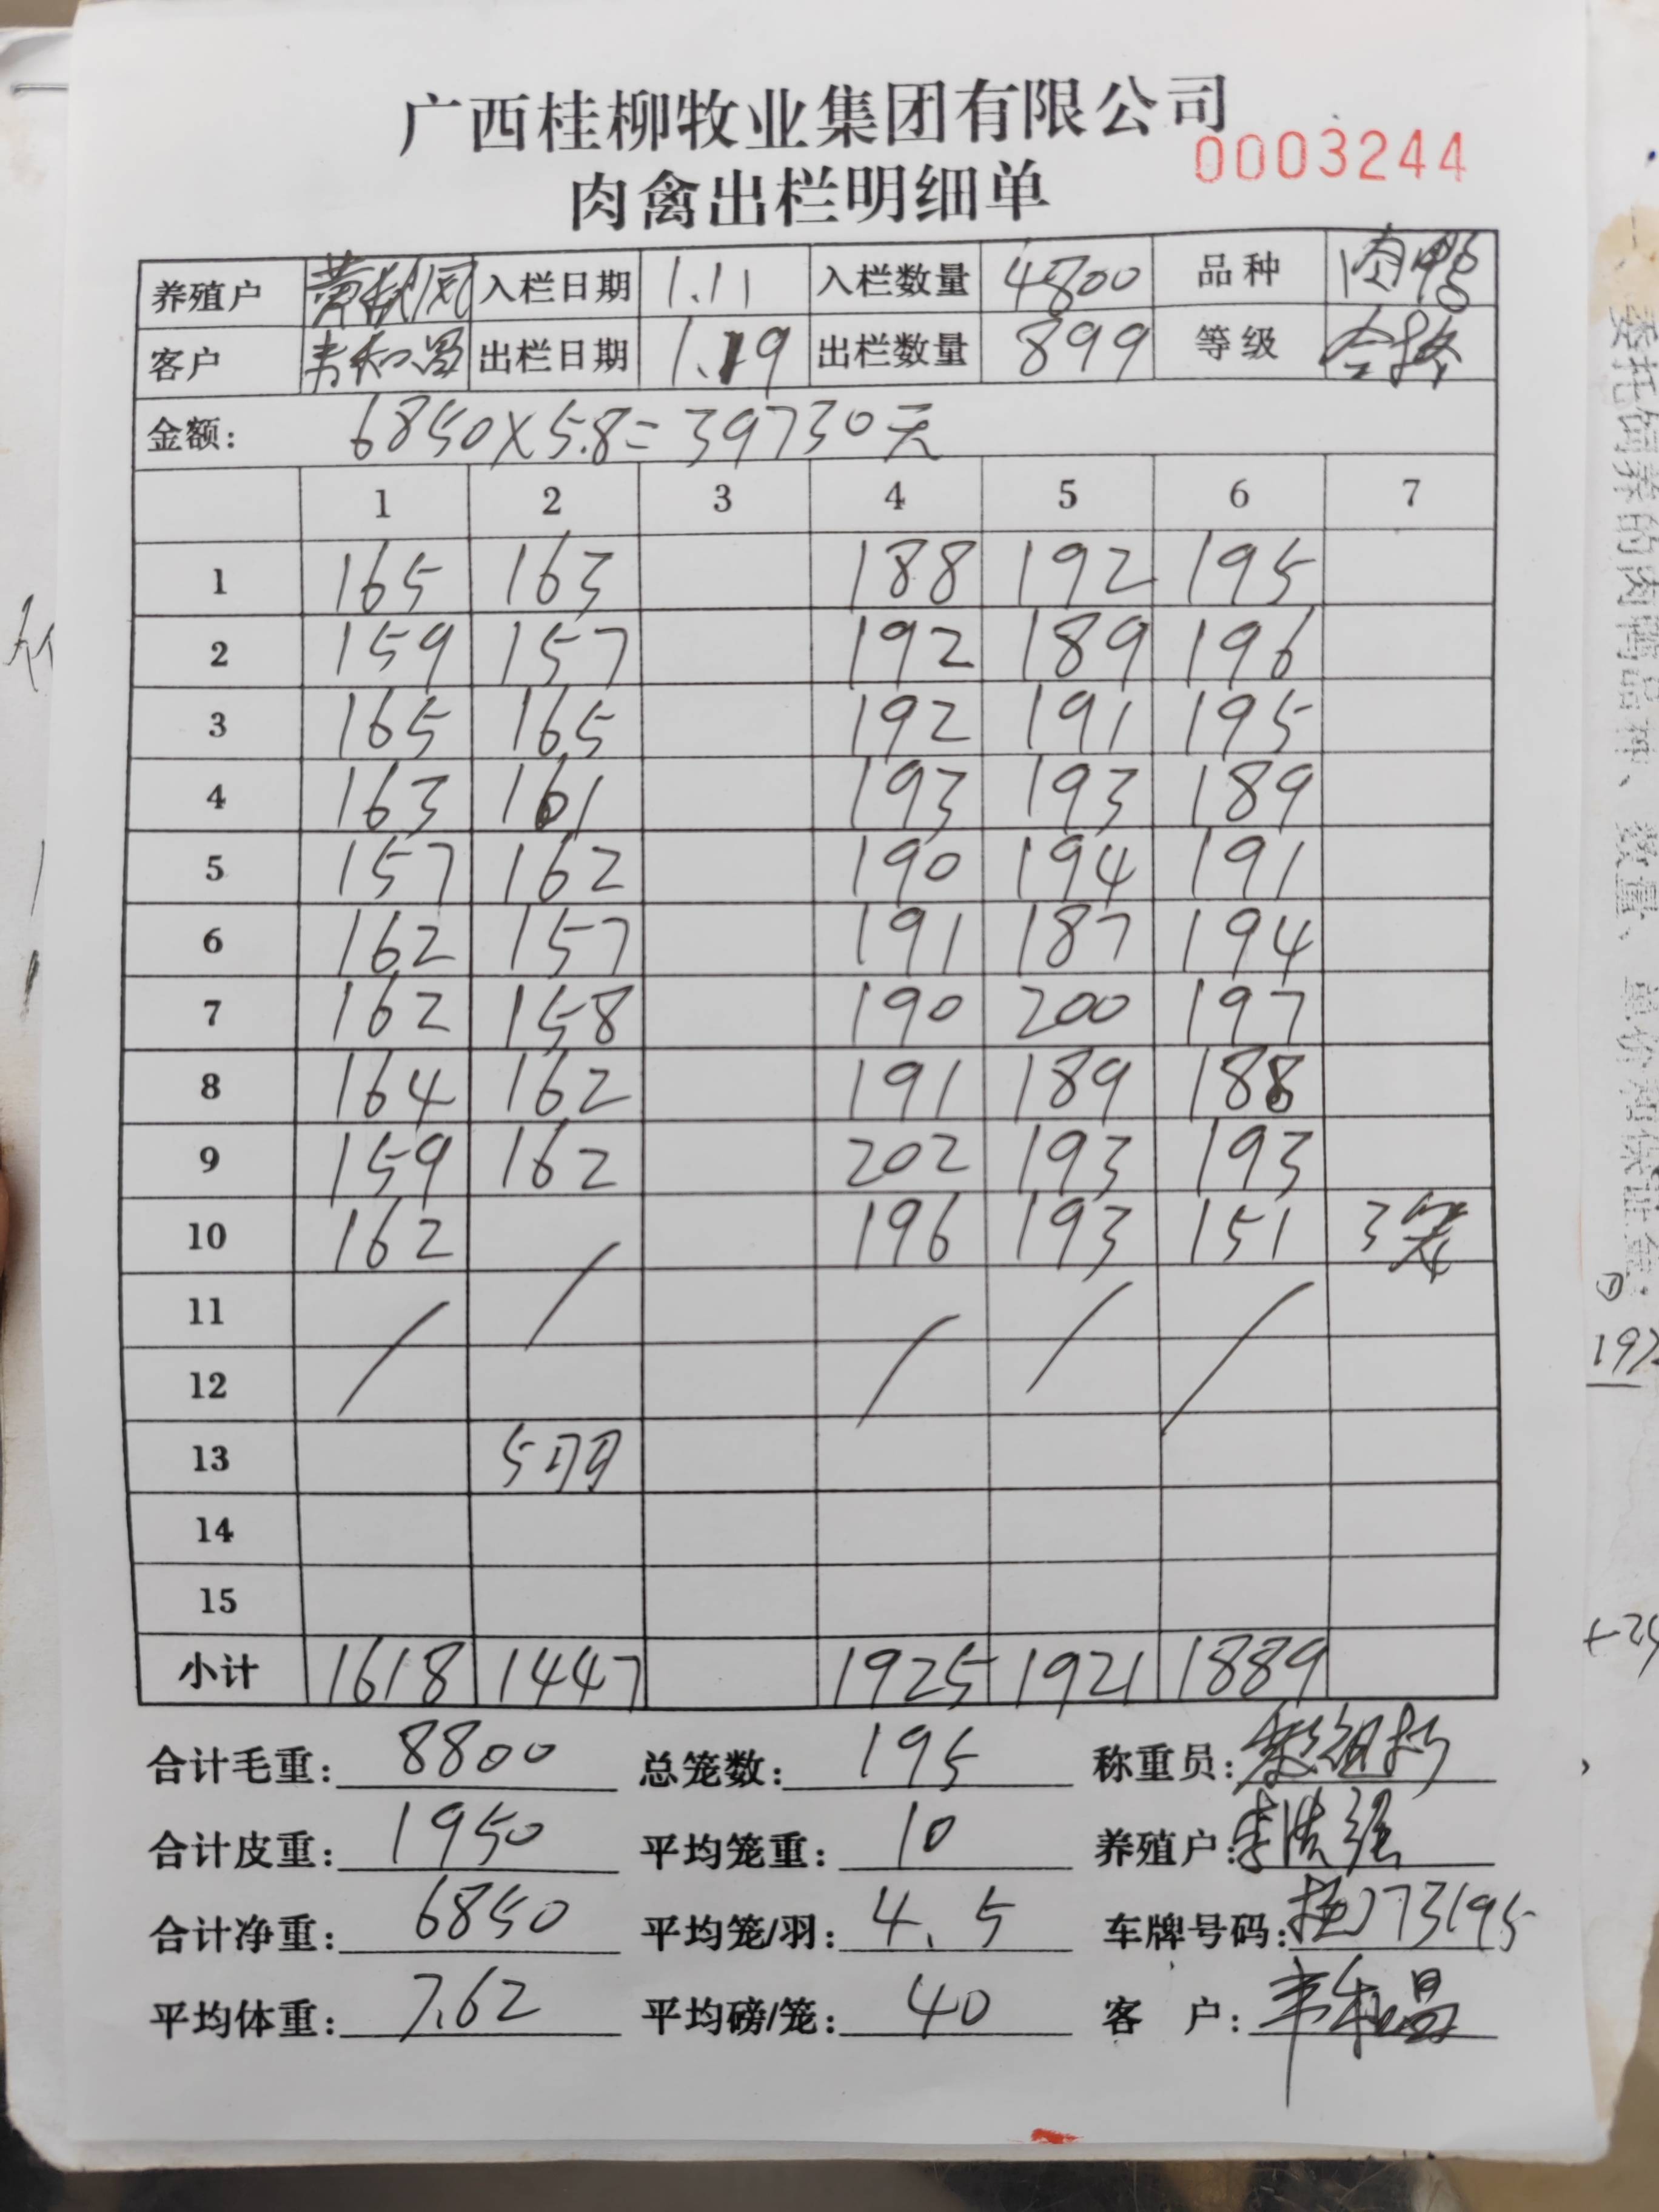 广西桂柳牧业集团有限公司
0003244
肉禽出栏明细单
养殖户 黄秋凤 入栏日期 1.11 入栏数量 4800 品种 肉鸭
客户 韦和昌 出栏日期 1.19 出栏数量 899 等级 合格
金额: 6850×5.8=39730元
1 2 3 4 5 6 7
1 165 163 188 192 195
2 159 157 192 189 196
3 165 165 192 191 195
4 163 161 193 193 189
5 157 162 190 194 191
6 162 157 191 187 194
7 162 158 190 200 197
8 164 162 191 189 188
9 159 162 202 193 193
10 162 196 193 151 3笼
11
12
13 5羽
14
15
小计 1618 1447 1925 1921 1889
合计毛重: 8800 总笼数: 195 称重员:
合计皮重: 1950 平均笼重: 10 养殖户: 李浩强
合计净重: 6850 平均笼/羽: 4.5 车牌号码: 桂J73195
平均体重: 7.62 平均磅/笼: 40 客 户: 韦和昌
委托饲养的肉鸭品种、数量、单价和保证金